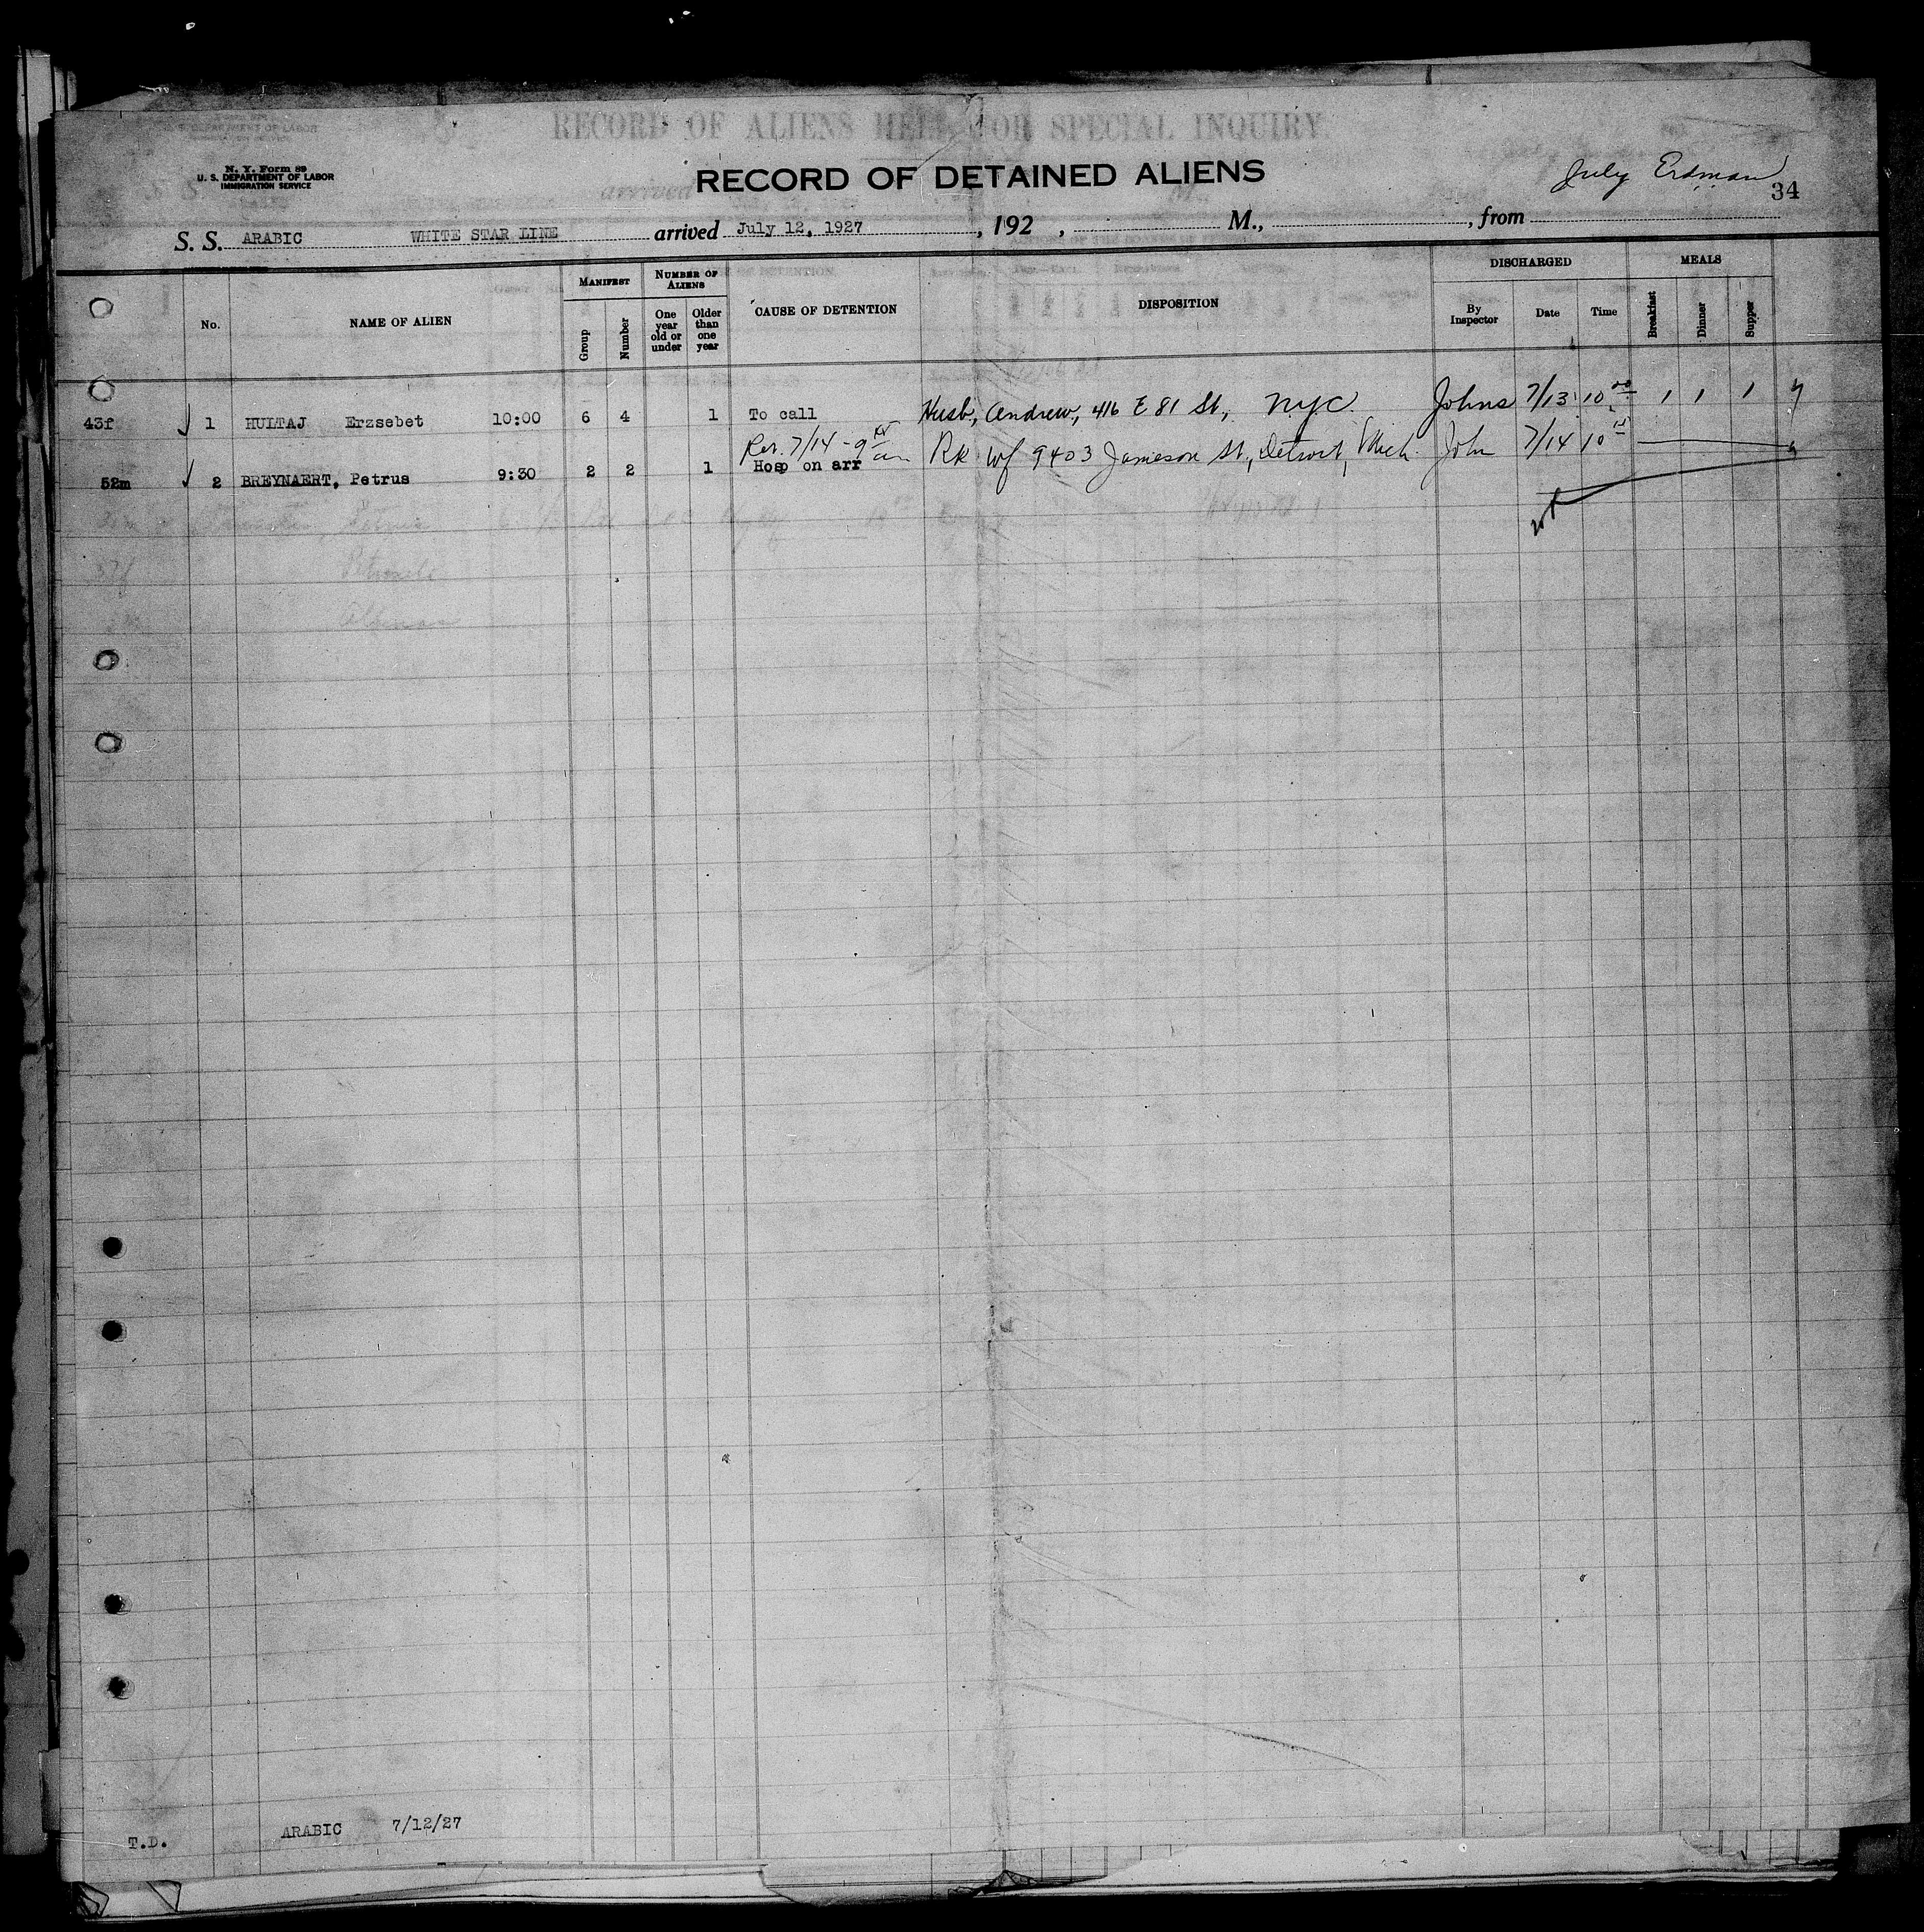 RECORD OF ALIENS HELD FOR SPECIAL INQUIRY.
N. Y. Form 89
U. S. DEPARTMENT OF LABOR
IMMIGRATION SERVICE
RECORD OF DETAINED ALIENS
July Erdman
34
S. S. ARABIC WHITE STAR LINE arrived July 12, 1927, 192 , M., , from
No. NAME OF ALIEN MANIFEST Group Number NUMBER OF ALIENS One year old or under Older than one year CAUSE OF DETENTION DISPOSITION DISCHARGED By Inspector Date Time MEALS Breakfast Dinner Supper
43f 1 HULTAJ Erzsebet 10:00 6 4 1 To call Husb, Andrew, 416 E 81 St, N.Y.C. Johns 7/13 10 00 1 1 1
7/14 - 9
52m 2 BREYNAERT, Petrus 9:30 2 2 1 Hosp on arr RR Wf 9403 Jameson St., Detroit, Mich. John 7/14 10
T.D. ARABIC 7/12/27